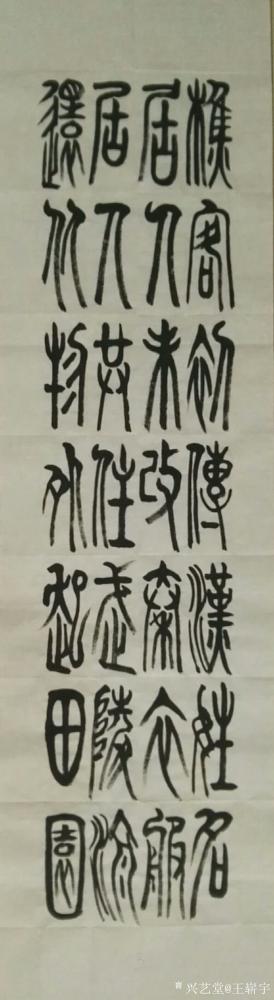 樵客初傳漢姓名
居人未改秦衣服
居人共住武陵源
還從物外起田園
兴艺堂@王崭宇